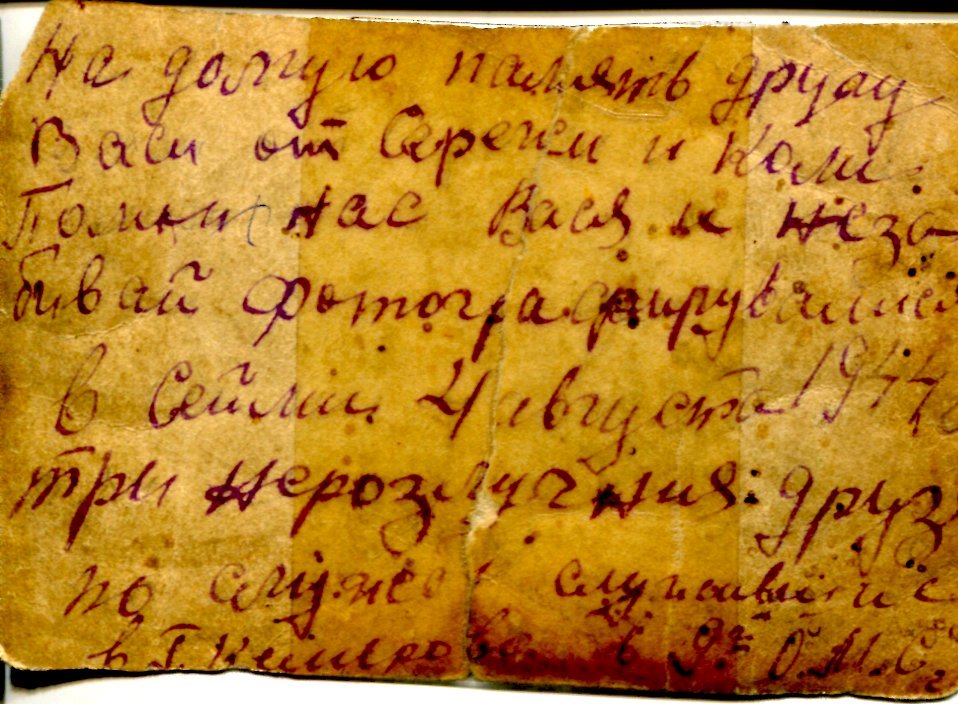 На долгую память другу
Васи от Сережи и Коли.
Помни нас Вася и неза
бивай фотографирувались
в Сейми 4 августа 1944 г
три нерозлучния друз
по службе служивши с
в г. Кемерово в